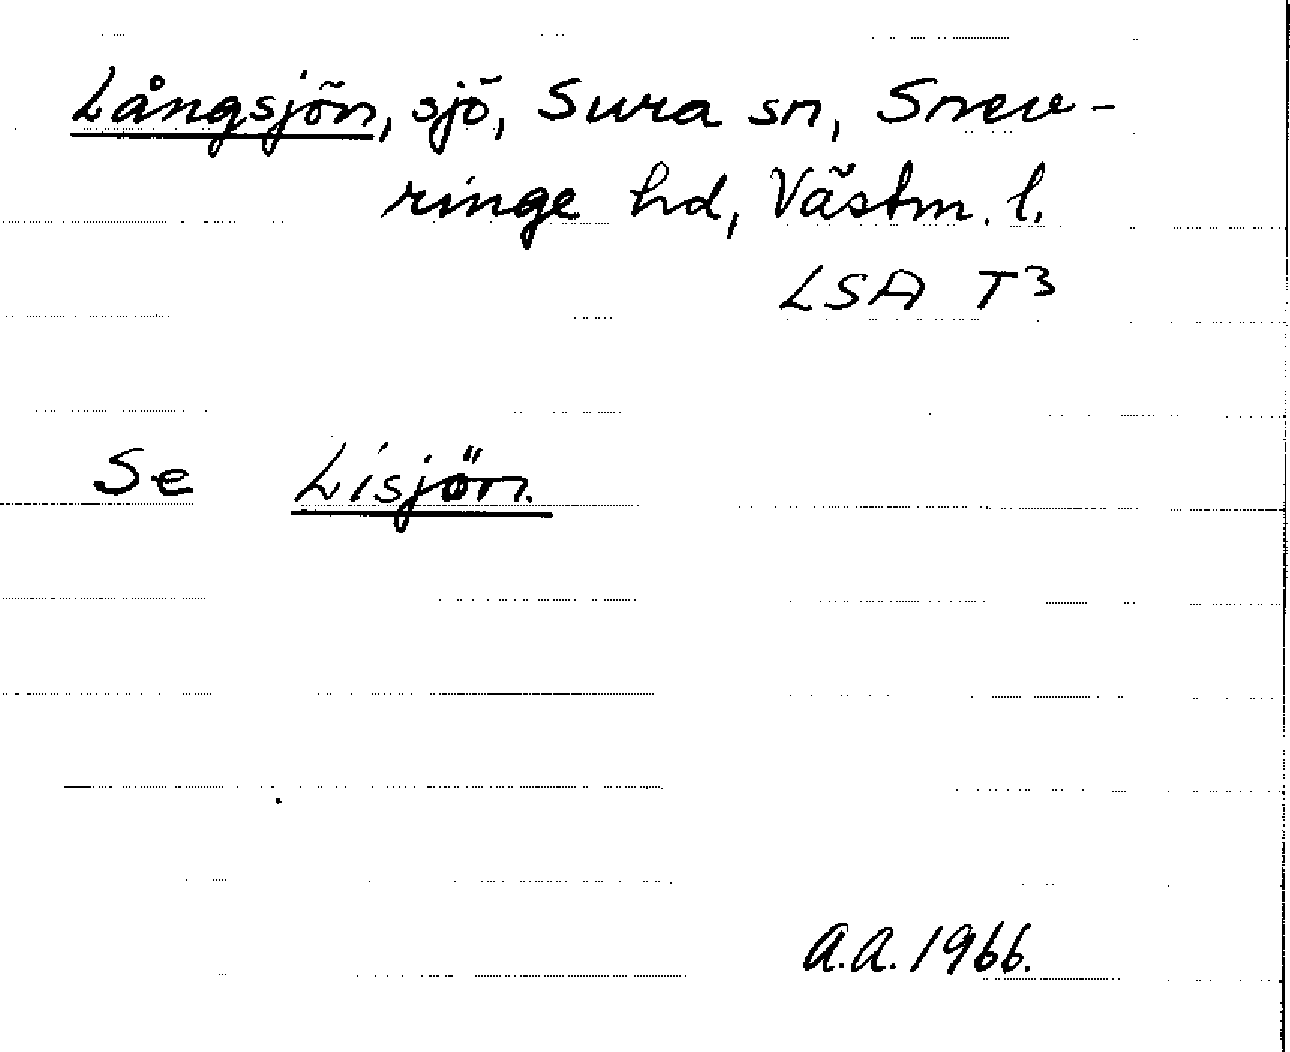 Långsjön, sjö, Sura sn, Snev-
ringe hd, Västm. l.
LSA T3
Se Lisjön.
A.A. 1966.